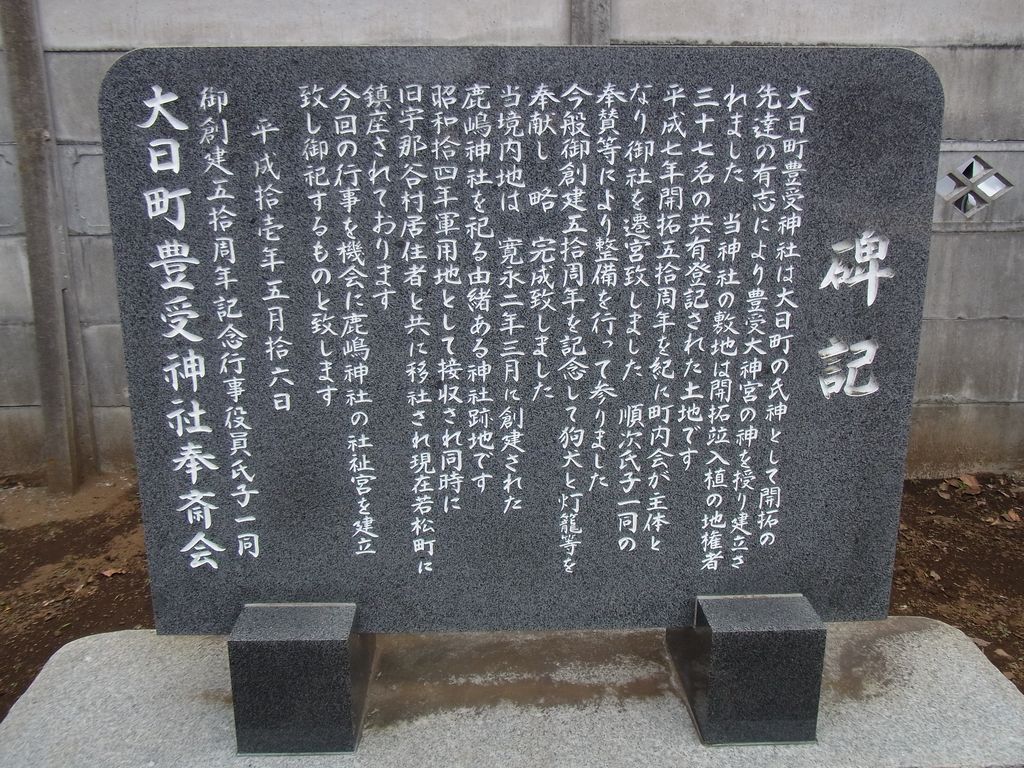 碑記
大日町豊受神社は大日町の氏神として開拓の
先達の有志により豊受大神宮の神を授り建立さ
れました　当神社の敷地は開拓竝入植の地権者
三十七名の共有登記された土地です
平成七年開拓五拾周年を紀に町内会が主体と
なり御社を遷宮致しました　順次氏子一同の
奉賛等により整備を行って参りました
今般御創建五拾周年を記念して狗犬と灯籠等を
奉献し　略　完成致しました
当境内地は　寛永二年三月に創建された
鹿嶋神社を祀る由緒ある神社跡地です
昭和拾四年軍用地として接収され同時に
旧宇那谷村居住者と共に移社され現在若松町に
鎮座されております
今回の行事を機会に鹿嶋神社の社祉宮を建立
致し御祀するものと致します
平成拾壱年五月拾六日
御創建五拾周年記念行事役員氏子一同
大日町豊受神社奉斎会